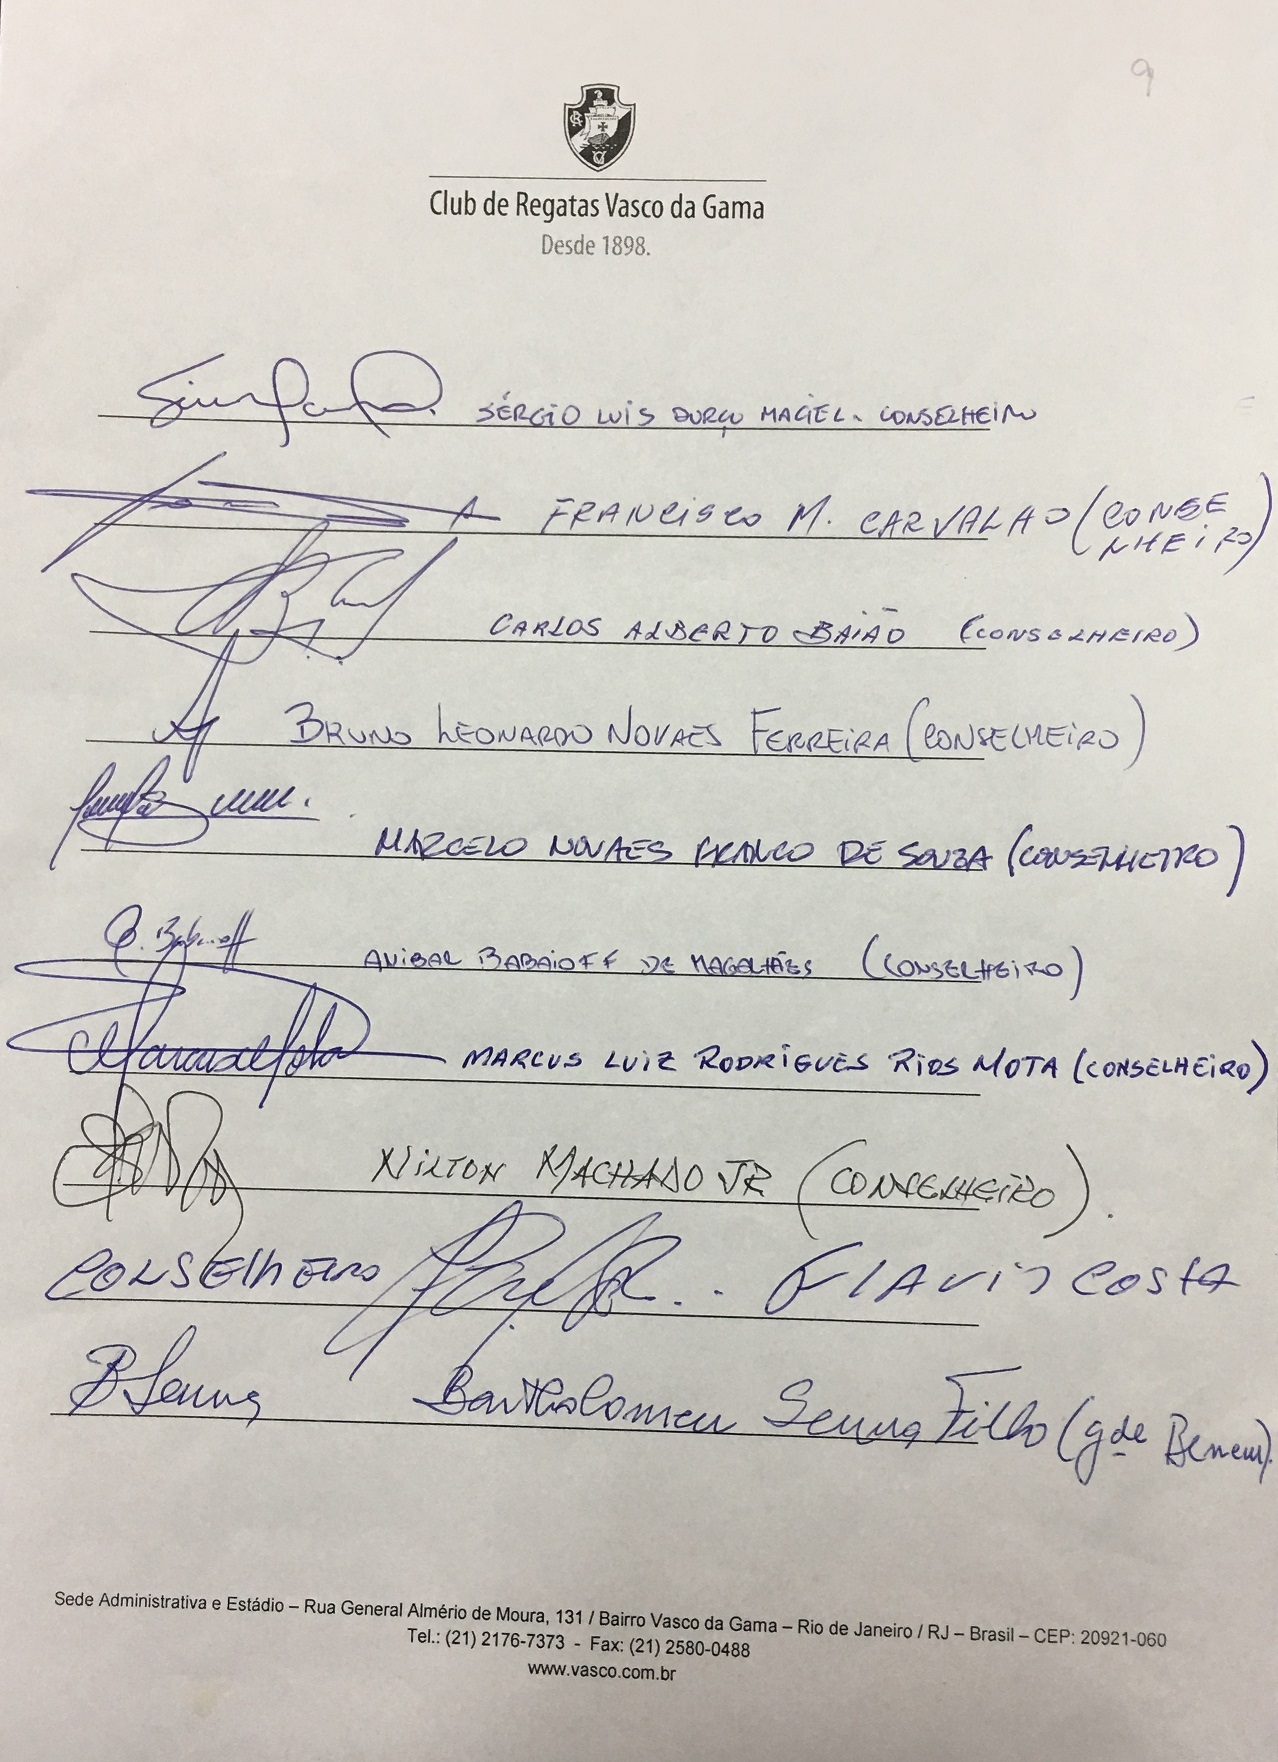 9
Club de Regatas Vasco da Gama
Desde 1898.
SÉRGIO LUIS DURÇO MACIEL. CONSELHEIRO
FRANCISCO M. CARVALHO (CONSE
LHEIRO)
CARLOS ALBERTO BAIÃO (CONSELHEIRO)
BRUNO LEONARDO NOVAES FERREIRA (CONSELHEIRO)
MARCELO NOVAES FRANCO DE SOUZA (CONSELHEIRO)
ANIBAL BABAIOFF DE MAGALHÃES (CONSELHEIRO)
MARCUS LUIZ RODRIGUES RIOS MOTA (CONSELHEIRO)
NILTON MACHADO JR (CONSELHEIRO).
CONSELHEIRO FLAVIO COSTA
B Senna Bartholomeu Senna Filho (gde Benem).
Sede Administrativa e Estádio – Rua General Almério de Moura, 131 / Bairro Vasco da Gama – Rio de Janeiro / RJ – Brasil – CEP: 20921-060
Tel.: (21) 2176-7373 - Fax: (21) 2580-0488
www.vasco.com.br